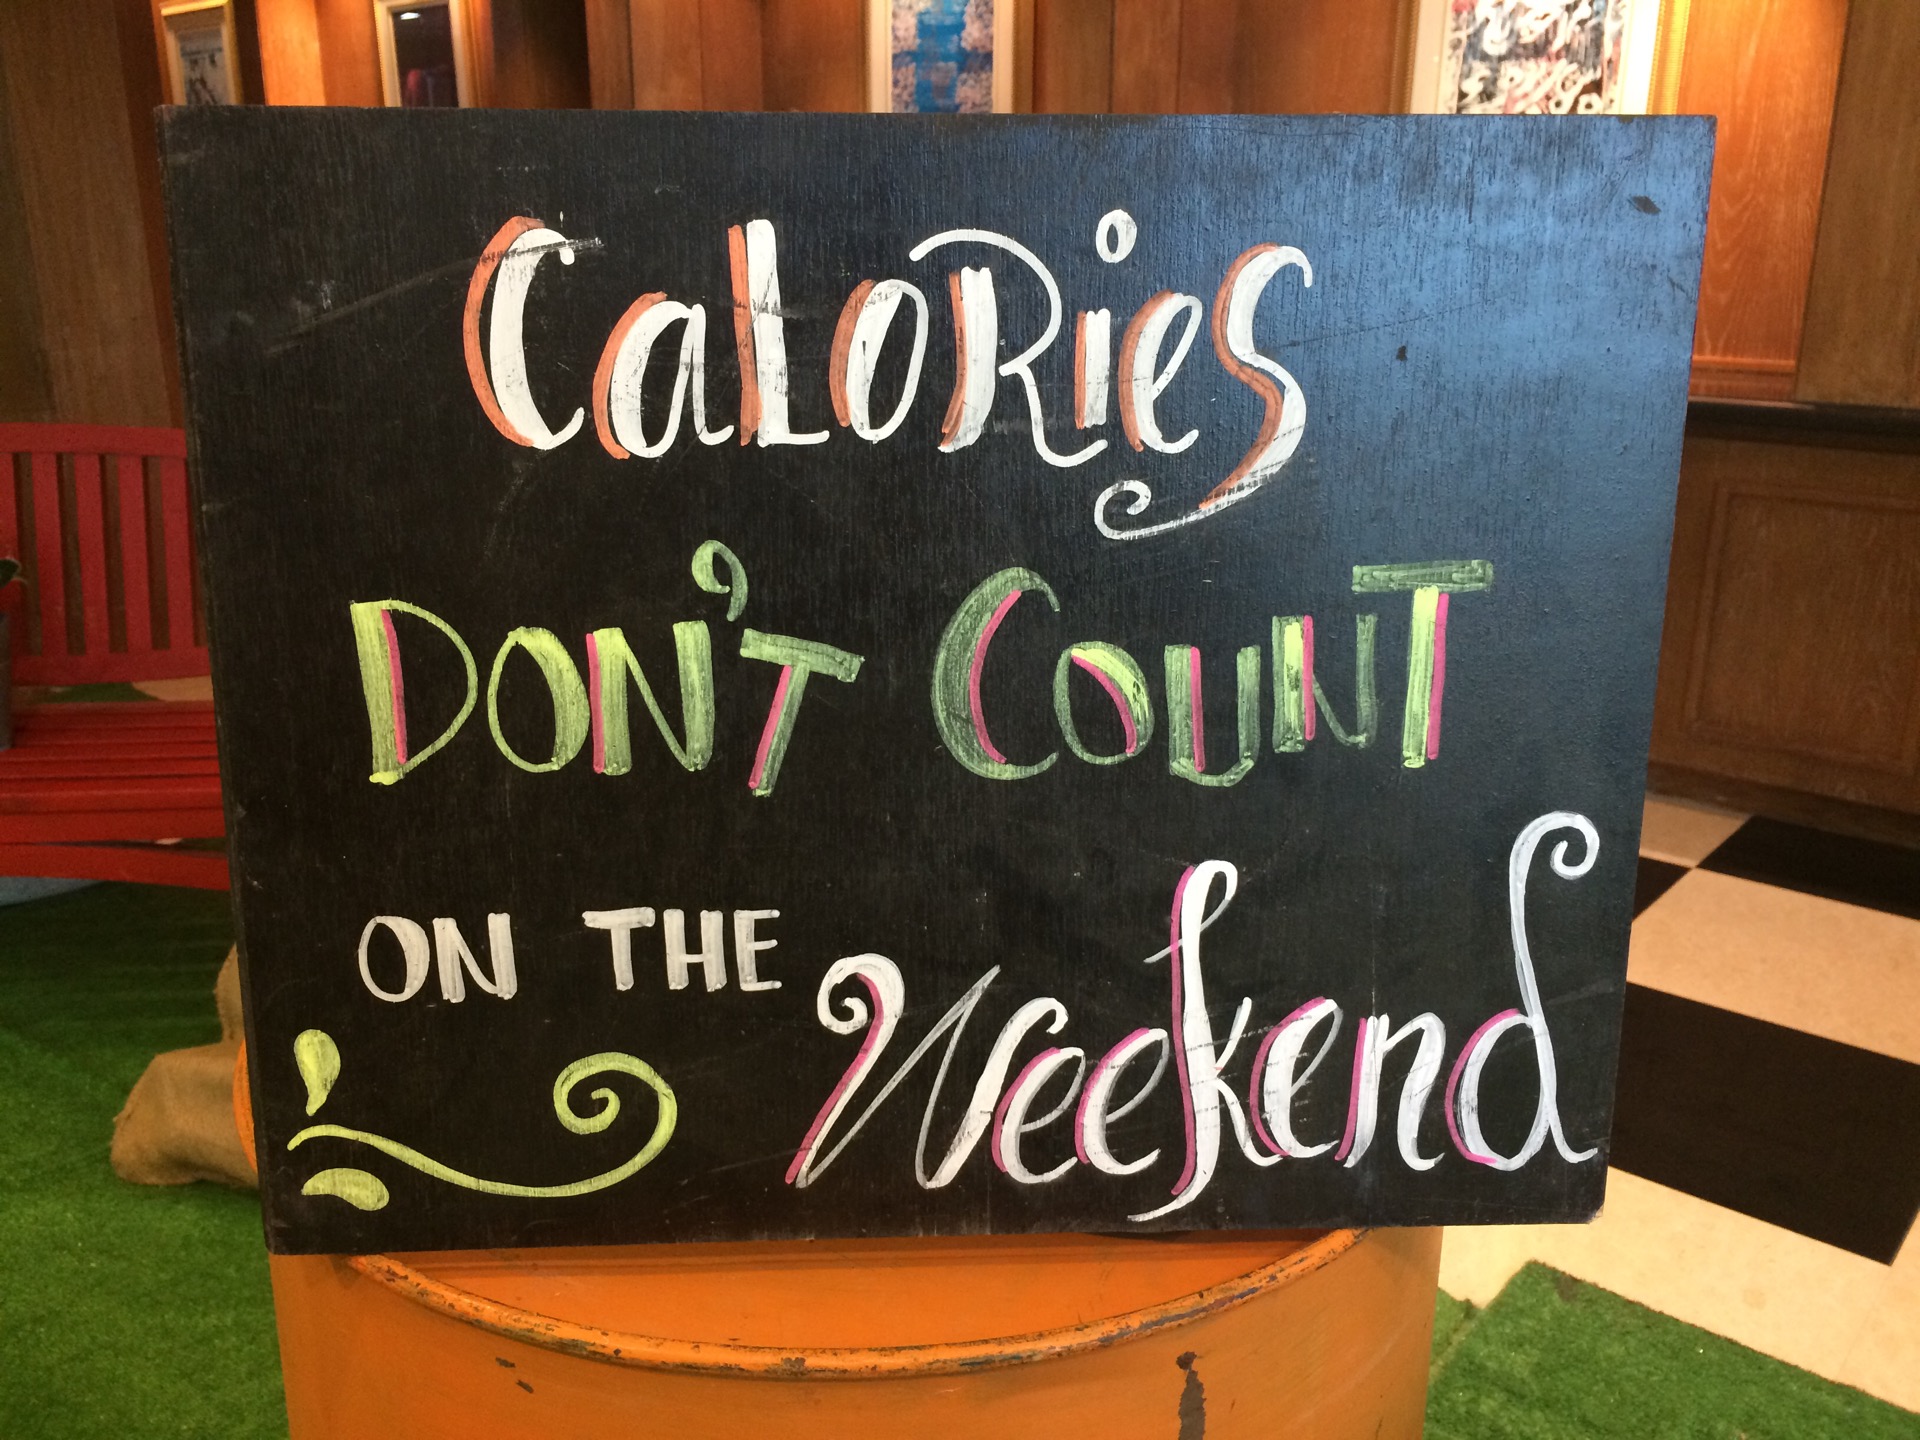 CaLoRies
DON'T COUNT
ON THE Weekend